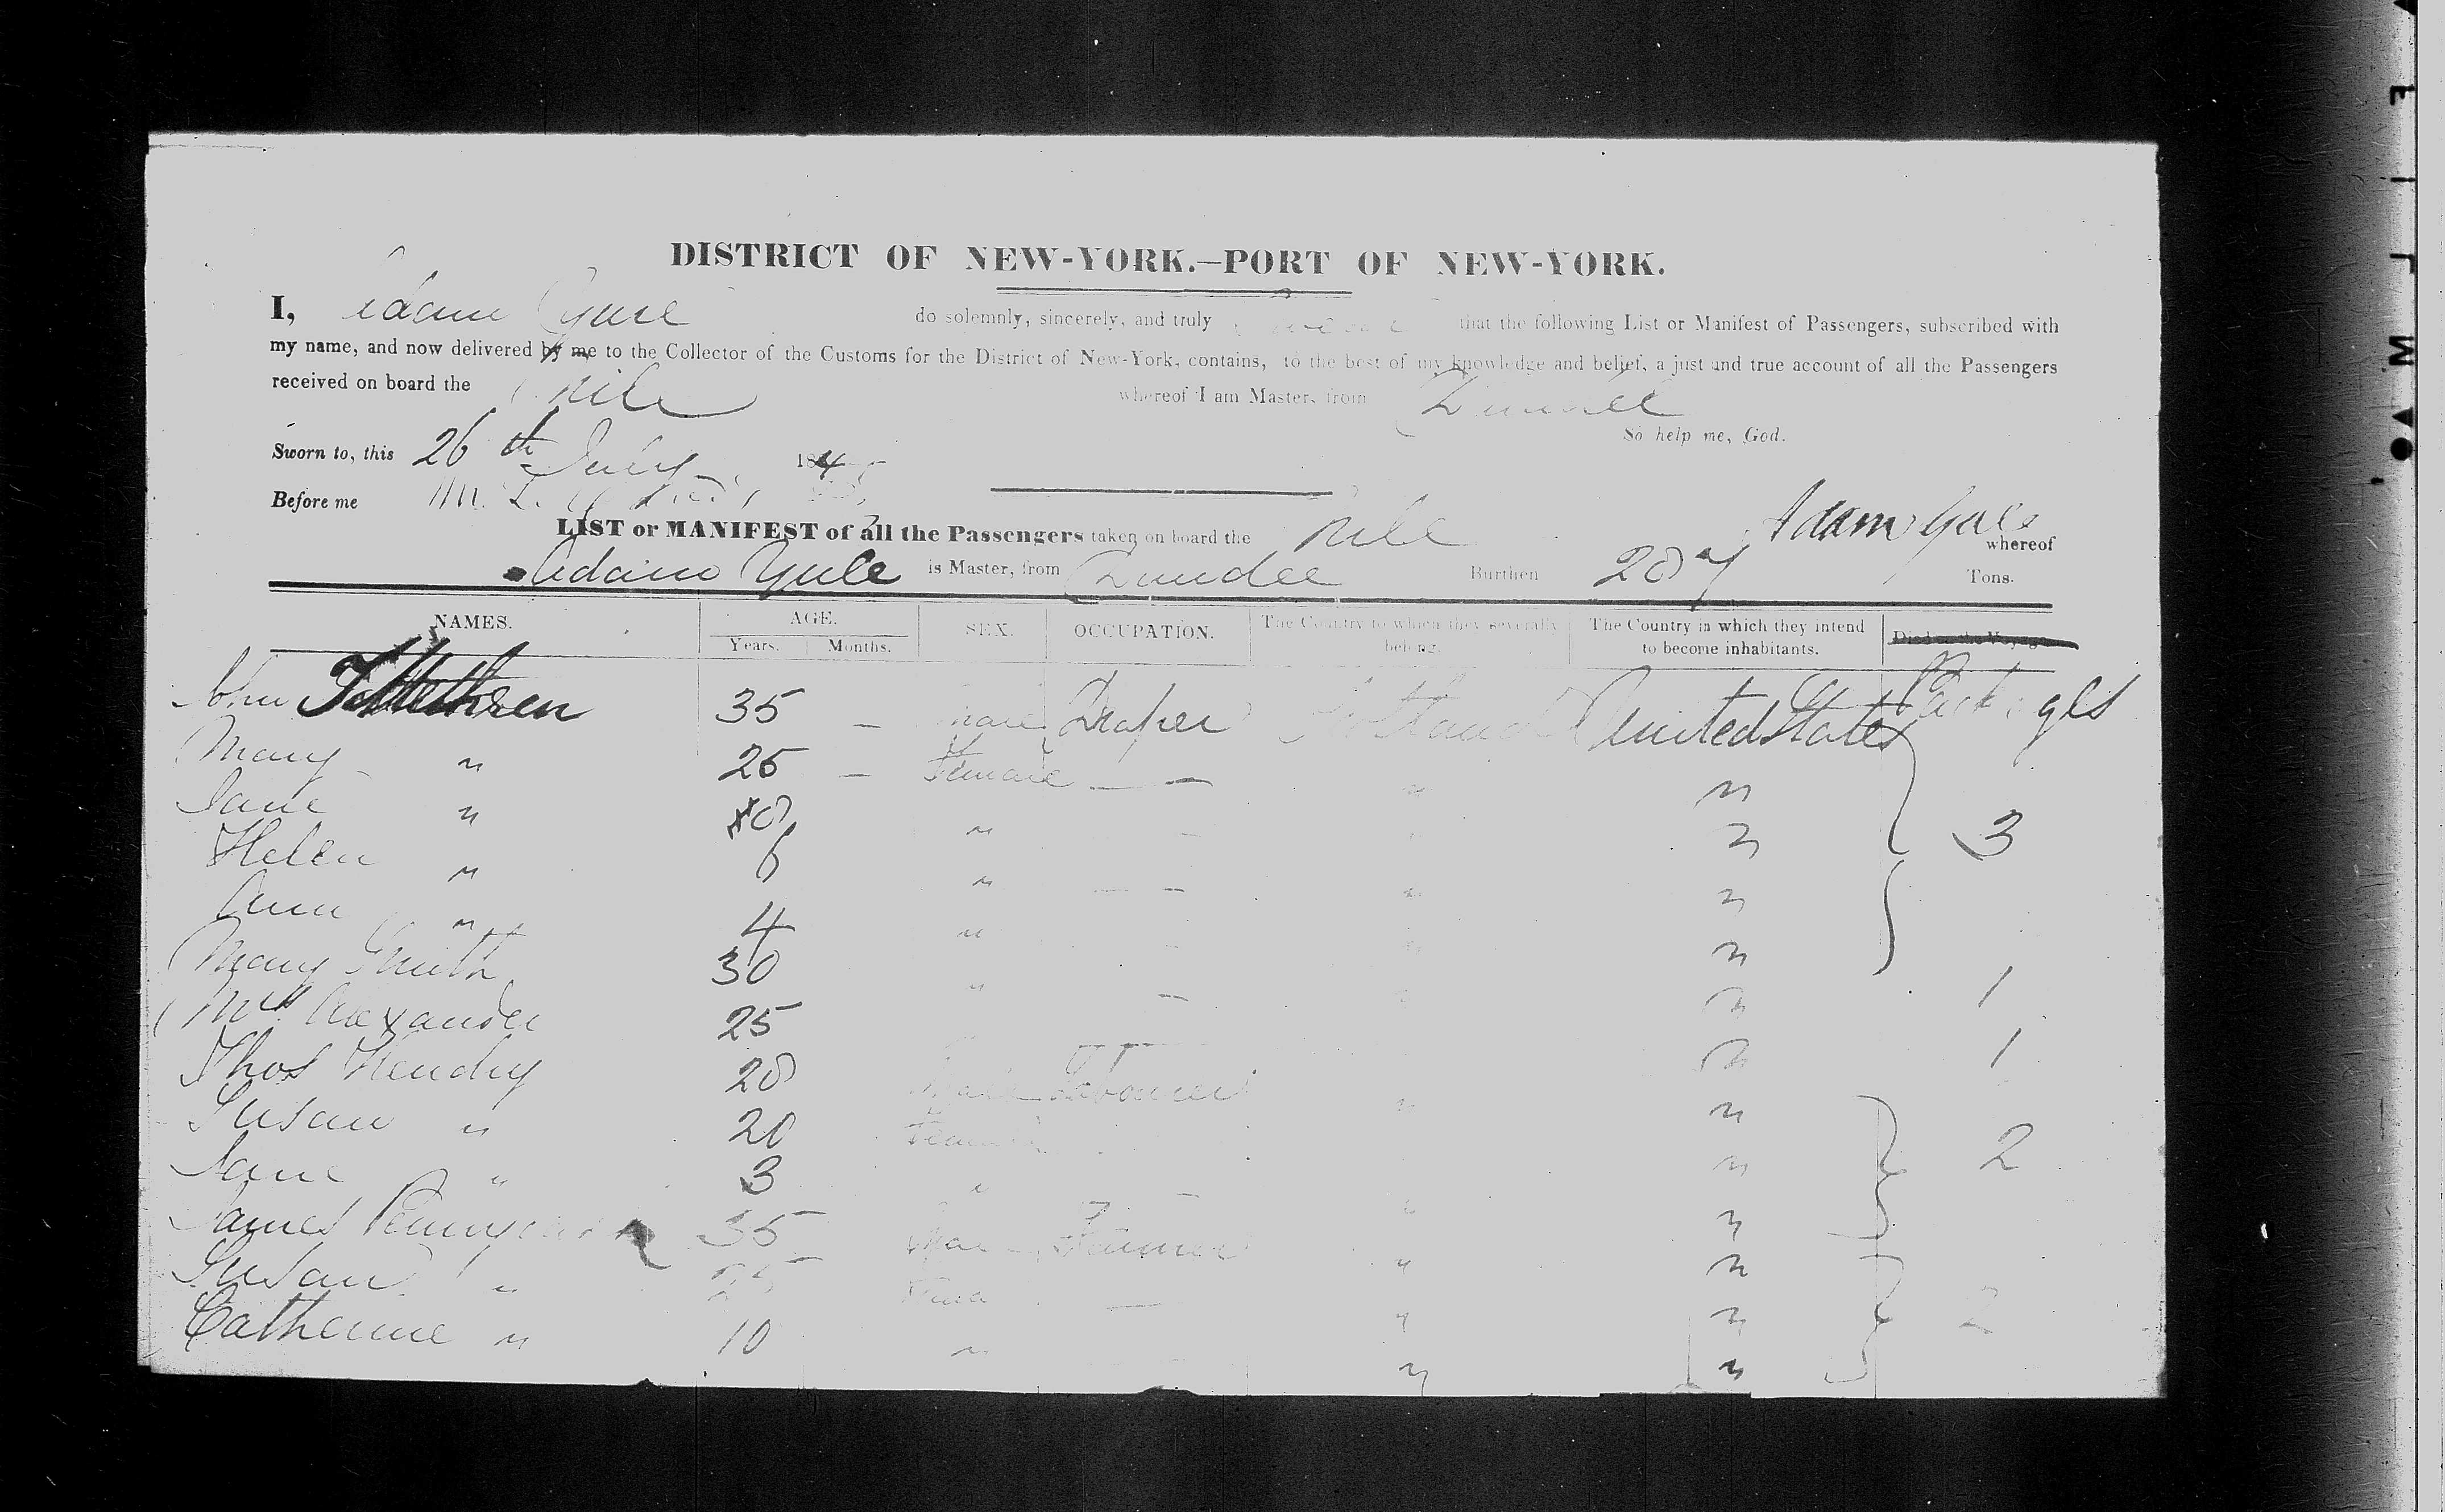 DISTRICT OF NEW-YORK.—PORT OF NEW-YORK.
I, Adam Yule do solemnly, sincerely, and truly that the following List or Manifest of Passengers, subscribed with
my name, and now delivered by me to the Collector of the Customs for the District of New-York, contains, to the best of my knowledge and belief, a just and true account of all the Passengers
received on board the Nile whereof I am Master, from Dundee
So help me, God.
Sworn to, this 26th July 184
Before me
Adam Yule
LIST or MANIFEST of all the Passengers taken on board the Nile whereof
Adam Yule is Master, from Dundee Burthen 287 Tons.
NAMES. AGE. SEX. OCCUPATION. The Country to which they severally belong. The Country in which they intend to become inhabitants. Died on the Voyage
Years. Months.
Packages
John 35 — Male Draper Scotland United States
Mary " 25 — Female — — " "
Jane " 8 " - " 3
Helen " 6 " — — " "
Ann " 4 " " "
Mary Smith 30 " — " " 1
Mrs Alexander 25 — " 1
Thos Hendry 28 Male Labourer " "
Susan " 20 Female " 2
Jane " 3 " — " "
James 35 Male Farmer " "
Susan " Female — " " 2
Catherine " 10 " " "